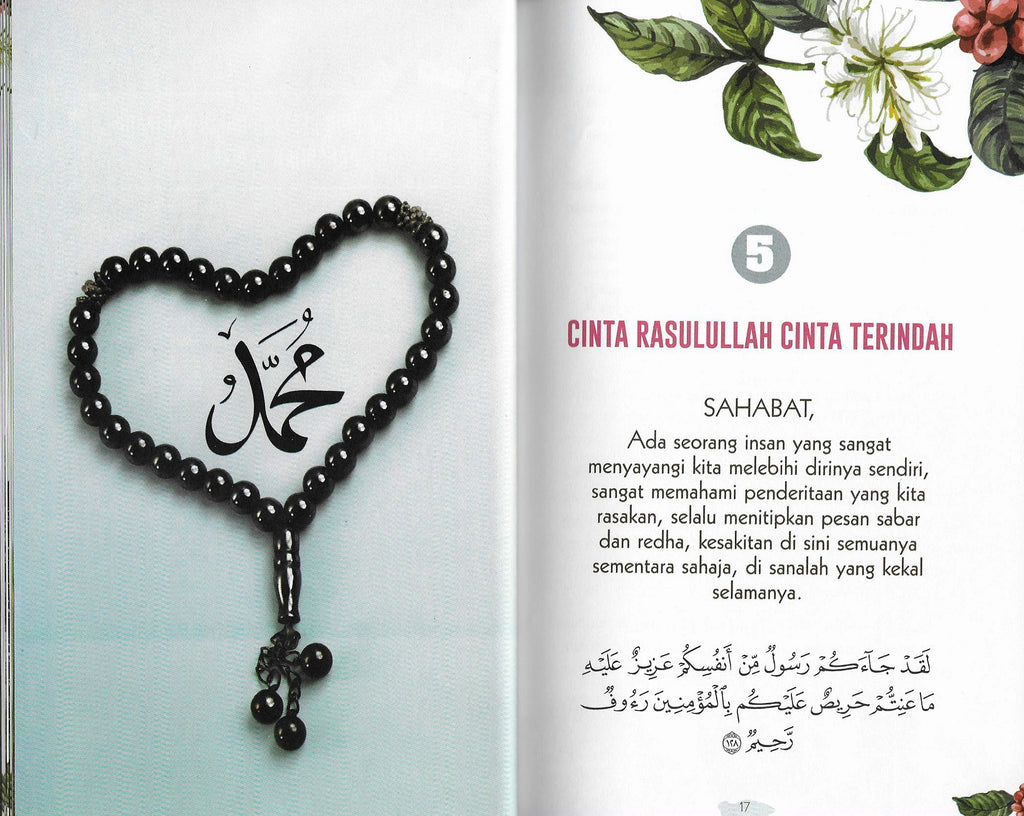 مُحَمَّدٌ
5
CINTA RASULULLAH CINTA TERINDAH
SAHABAT,
Ada seorang insan yang sangat
menyayangi kita melebihi dirinya sendiri,
sangat memahami penderitaan yang kita
rasakan, selalu menitipkan pesan sabar
dan redha, kesakitan di sini semuanya
sementara sahaja, di sanalah yang kekal
selamanya.
لَقَدْ جَآءَكُمْ رَسُولٌ مِّنْ أَنفُسِكُمْ عَزِيزٌ عَلَيْهِ
مَا عَنِتُّمْ حَرِيصٌ عَلَيْكُم بِٱلْمُؤْمِنِينَ رَءُوفٌ
رَّحِيمٌ ١٢٨
17